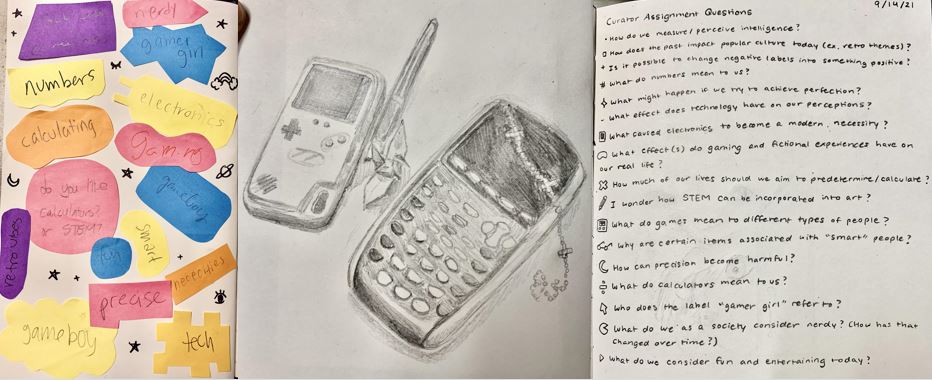 nerdy
gamer
girl
numbers
electronics
calculating
gaming
do you like
calculators?
or STEM?
gameboy
retro vibes
smart
fun
necceties
precise
gameboy
tech
9/14/21
Curator Assignment Questions
How do we measure/perceive intelligence?
How does the past impact popular culture today (ex. retro themes)?
Is it possible to change negative labels into something positive?
# What do numbers mean to us?
What might happen if we try to achieve perfection?
- What effect does technology have on our perceptions?
What caused electronics to become a modern necessity?
What effect(s) do gaming and fictional experiences have on
our real life?
How much of our lives should we aim to predetermine/calculate?
I wonder how STEM can be incorporated into art?
What do games mean to different types of people?
Why are certain items associated with "smart" people?
How can precision become harmful?
÷ What do calculators mean to us?
Who does the label "gamer girl" refer to?
What do we as a society consider nerdy? (How has that
changed over time?)
What do we consider fun and entertaining today?